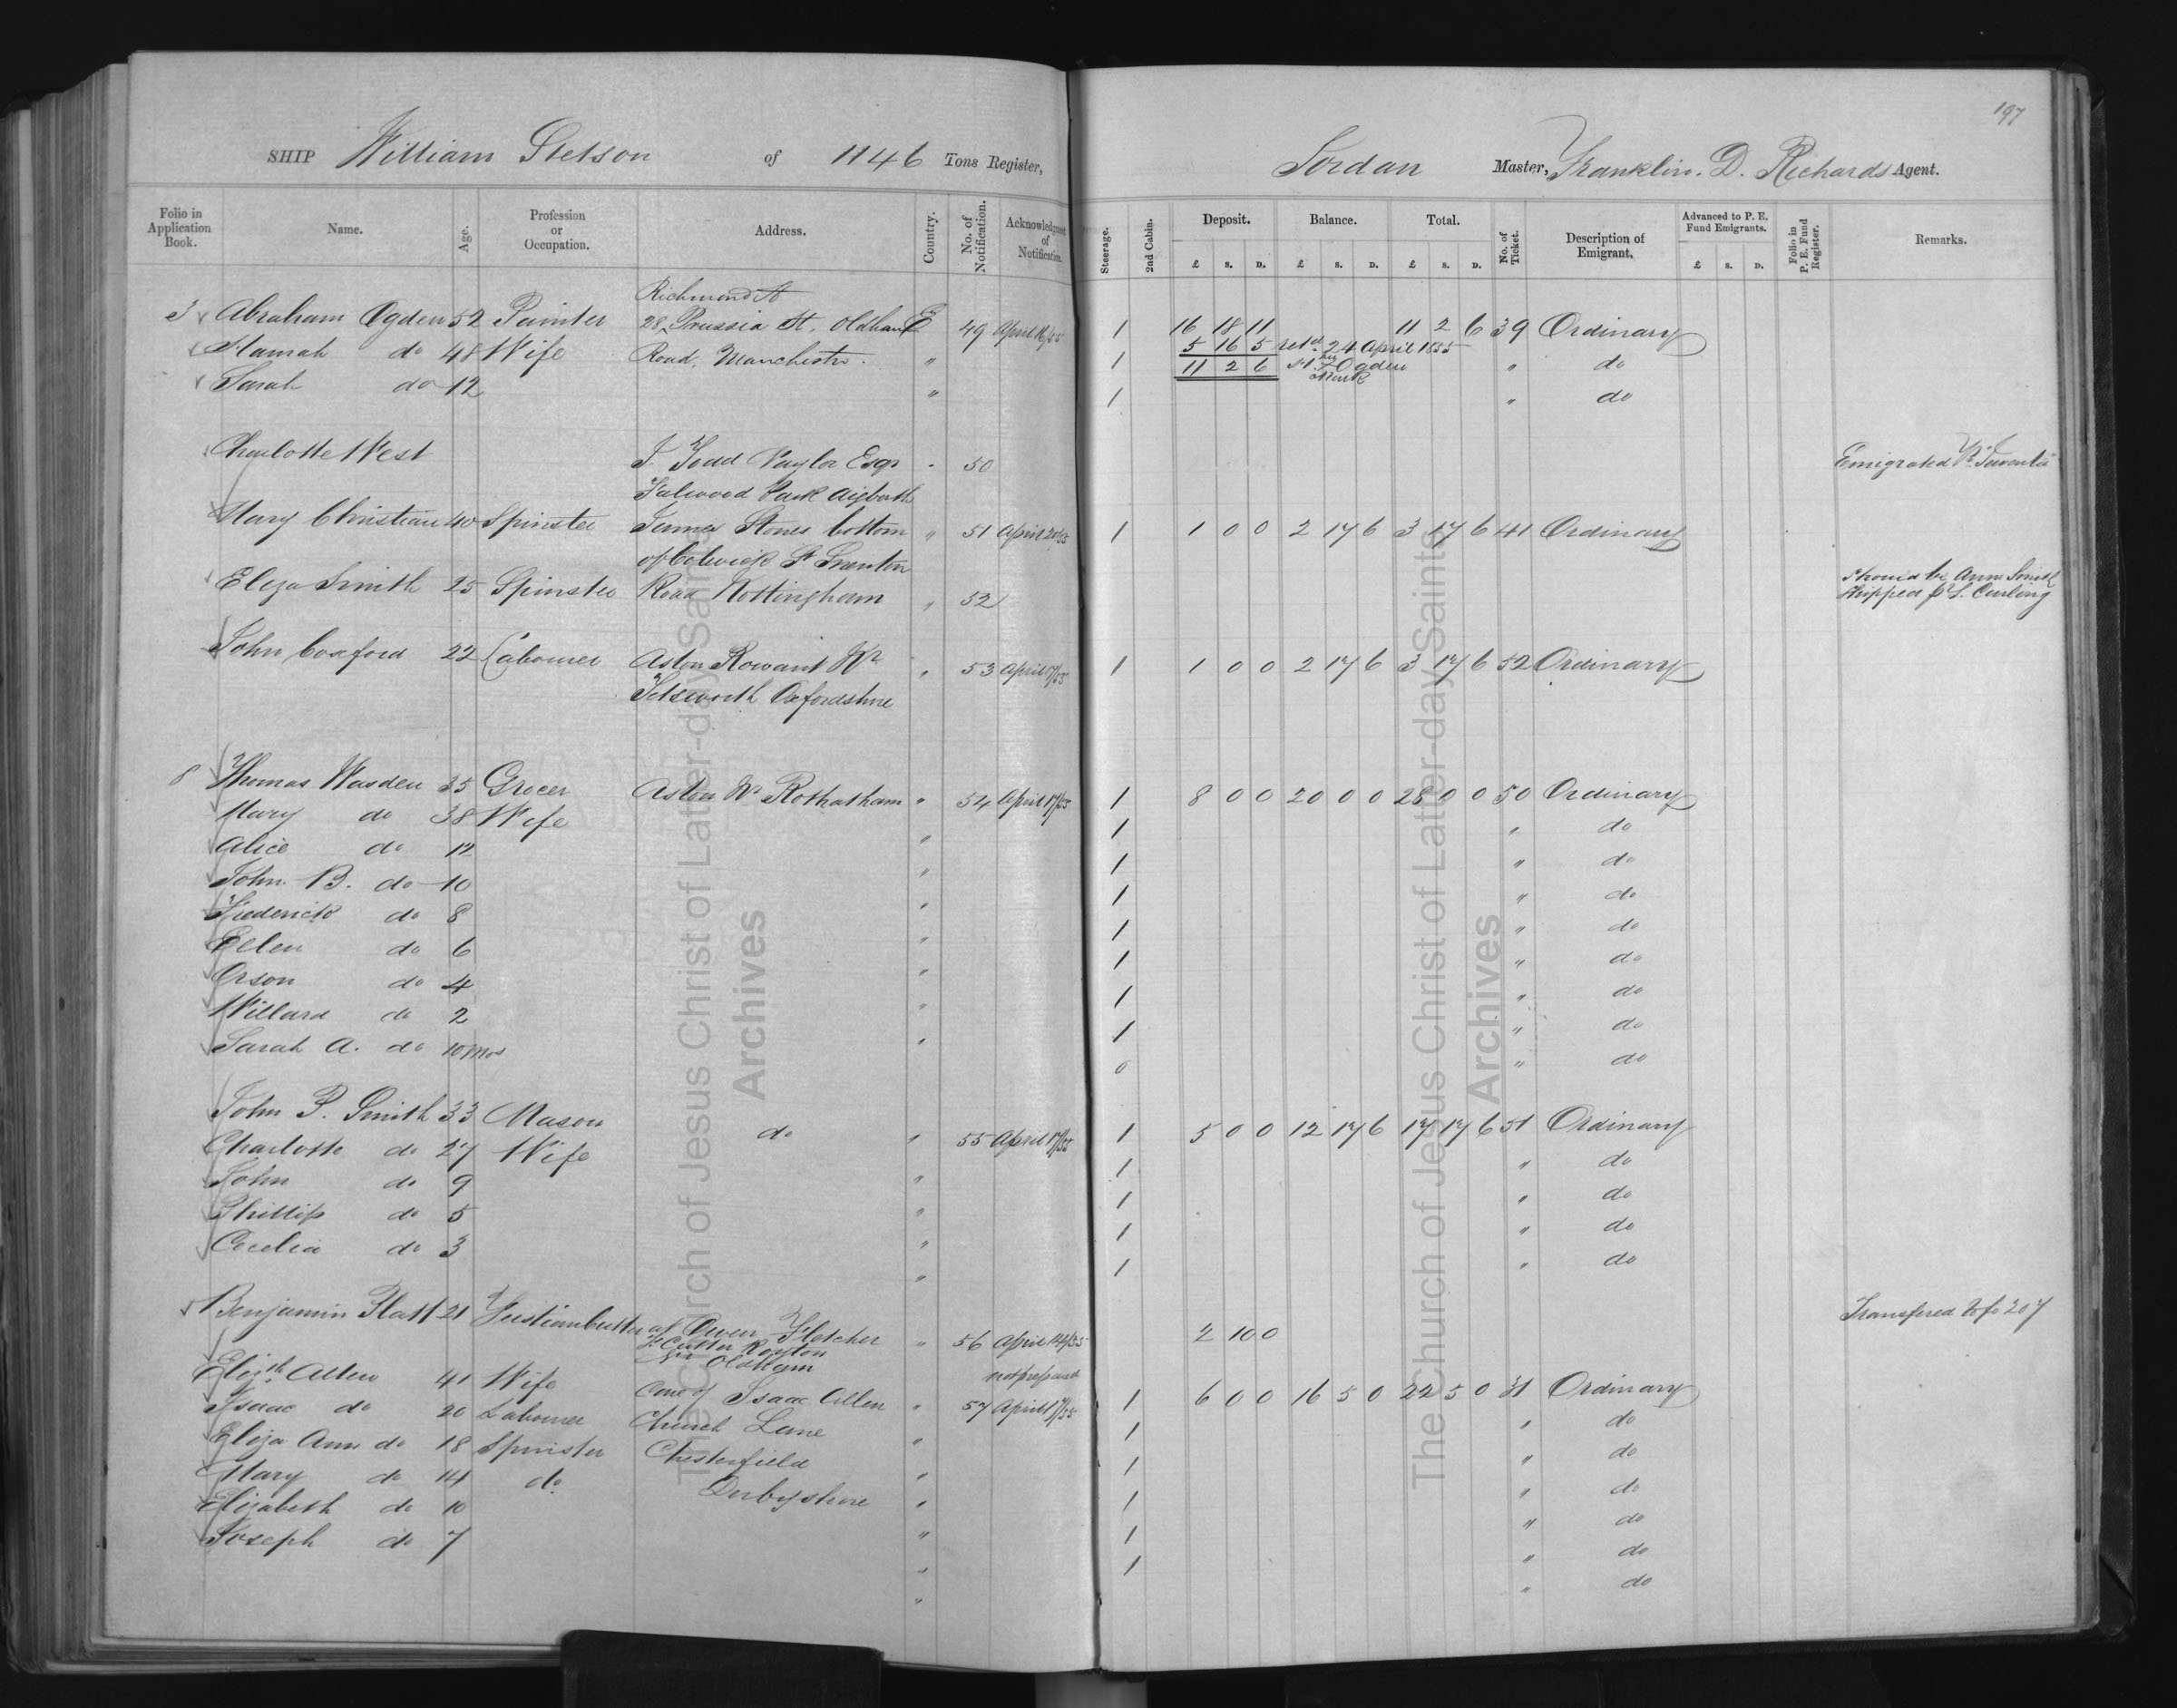 197
SHIP William Stetson of 1146 Tons Register, Jordan Master, Franklin. D. Richards Agent.
Folio in Application Book. Name. Age. Profession or Occupation. Address. Country. No. of Notification. Acknowledgment of Notification. Steerage. 2nd Cabin. Deposit. Balance. Total. No. of Ticket. Description of Emigrant. Advanced to P. E. Fund Emigrants. Folio in P. E. Fund Register. Remarks.
£ S. D. £ S. D. £ S. D. £ S. D.
Richmond St
3 Abraham Ogden 52 Painter 28 Prussia St. Oldham E 49 April 16/55 1 16 18 11 11 2 6 39 Ordinary
5 16 5 retd 24 April 1855
Hannah do 48 Wife Road, Manchester. " 1 11 2 6 her Ogden " do
Mark
Sarah do 12 " 1 " do
Charlotte West J. Todd Naylor Esqr 50 Emigrated Pr Juventa
Fulwood Park Aigburth
Mary Christian 40 Spinster James Stones bottom " 51 April 20/55 1 1 0 0 2 17 6 3 17 6 41 Ordinary
of Colwick St Snenton
Eliza Smith 25 Spinster Road Nottingham " 52 should be Ann Smith
shipped p S. Curling
John Coxford 22 Labourer Aston Rowant Nr " 53 April 17/55 1 1 0 0 2 17 6 3 17 6 52 Ordinary
Tetsworth Oxfordshire
8 Thomas Wasden 35 Grocer Aston Nr Rothatham " 54 April 17/55 1 8 0 0 20 0 0 28 0 0 50 Ordinary
Mary do 38 Wife " 1 " do
Alice do 12 " 1 " do
John B. do 10 " 1 " do
Frederick do 8 " 1 " do
Ellen do 6 " 1 " do
Orson do 4 " 1 " do
Willard do 2 " 1 " do
Sarah A. do 10 mos 0 " do
John P. Smith 33 Mason do " 55 April 17/55 1 5 0 0 12 17 6 17 17 6 51 Ordinary
Charlotte do 27 Wife " 1 " do
John do 9 " 1 " do
Phillip do 5 " 1 " do
Cecelia do 3 " 1 " do
Benjamin Platt 21 Fustian cutter at Owen Fletcher " 56 April 14/55 2 10 0 Transfered to fo 207
F. Cutter Royton
Nr Oldham
not prepared
Elizth Allen 41 Wife Care of Isaac Allen " 57 April 17/55 1 6 0 0 16 5 0 22 5 0 31 Ordinary
Isaac do 20 Labourer Church Lane " 1 " do
Eliza Ann do 18 Spinster Chesterfield " 1 " do
Mary do 14 do Derbyshire " 1 " do
Elizabeth do 10 " 1 " do
Joseph do 7 " 1 " do
" " do
The Church of Jesus Christ of Latter-day Saints
Archives
The Church of Jesus Christ of Latter-day Saints
Archives